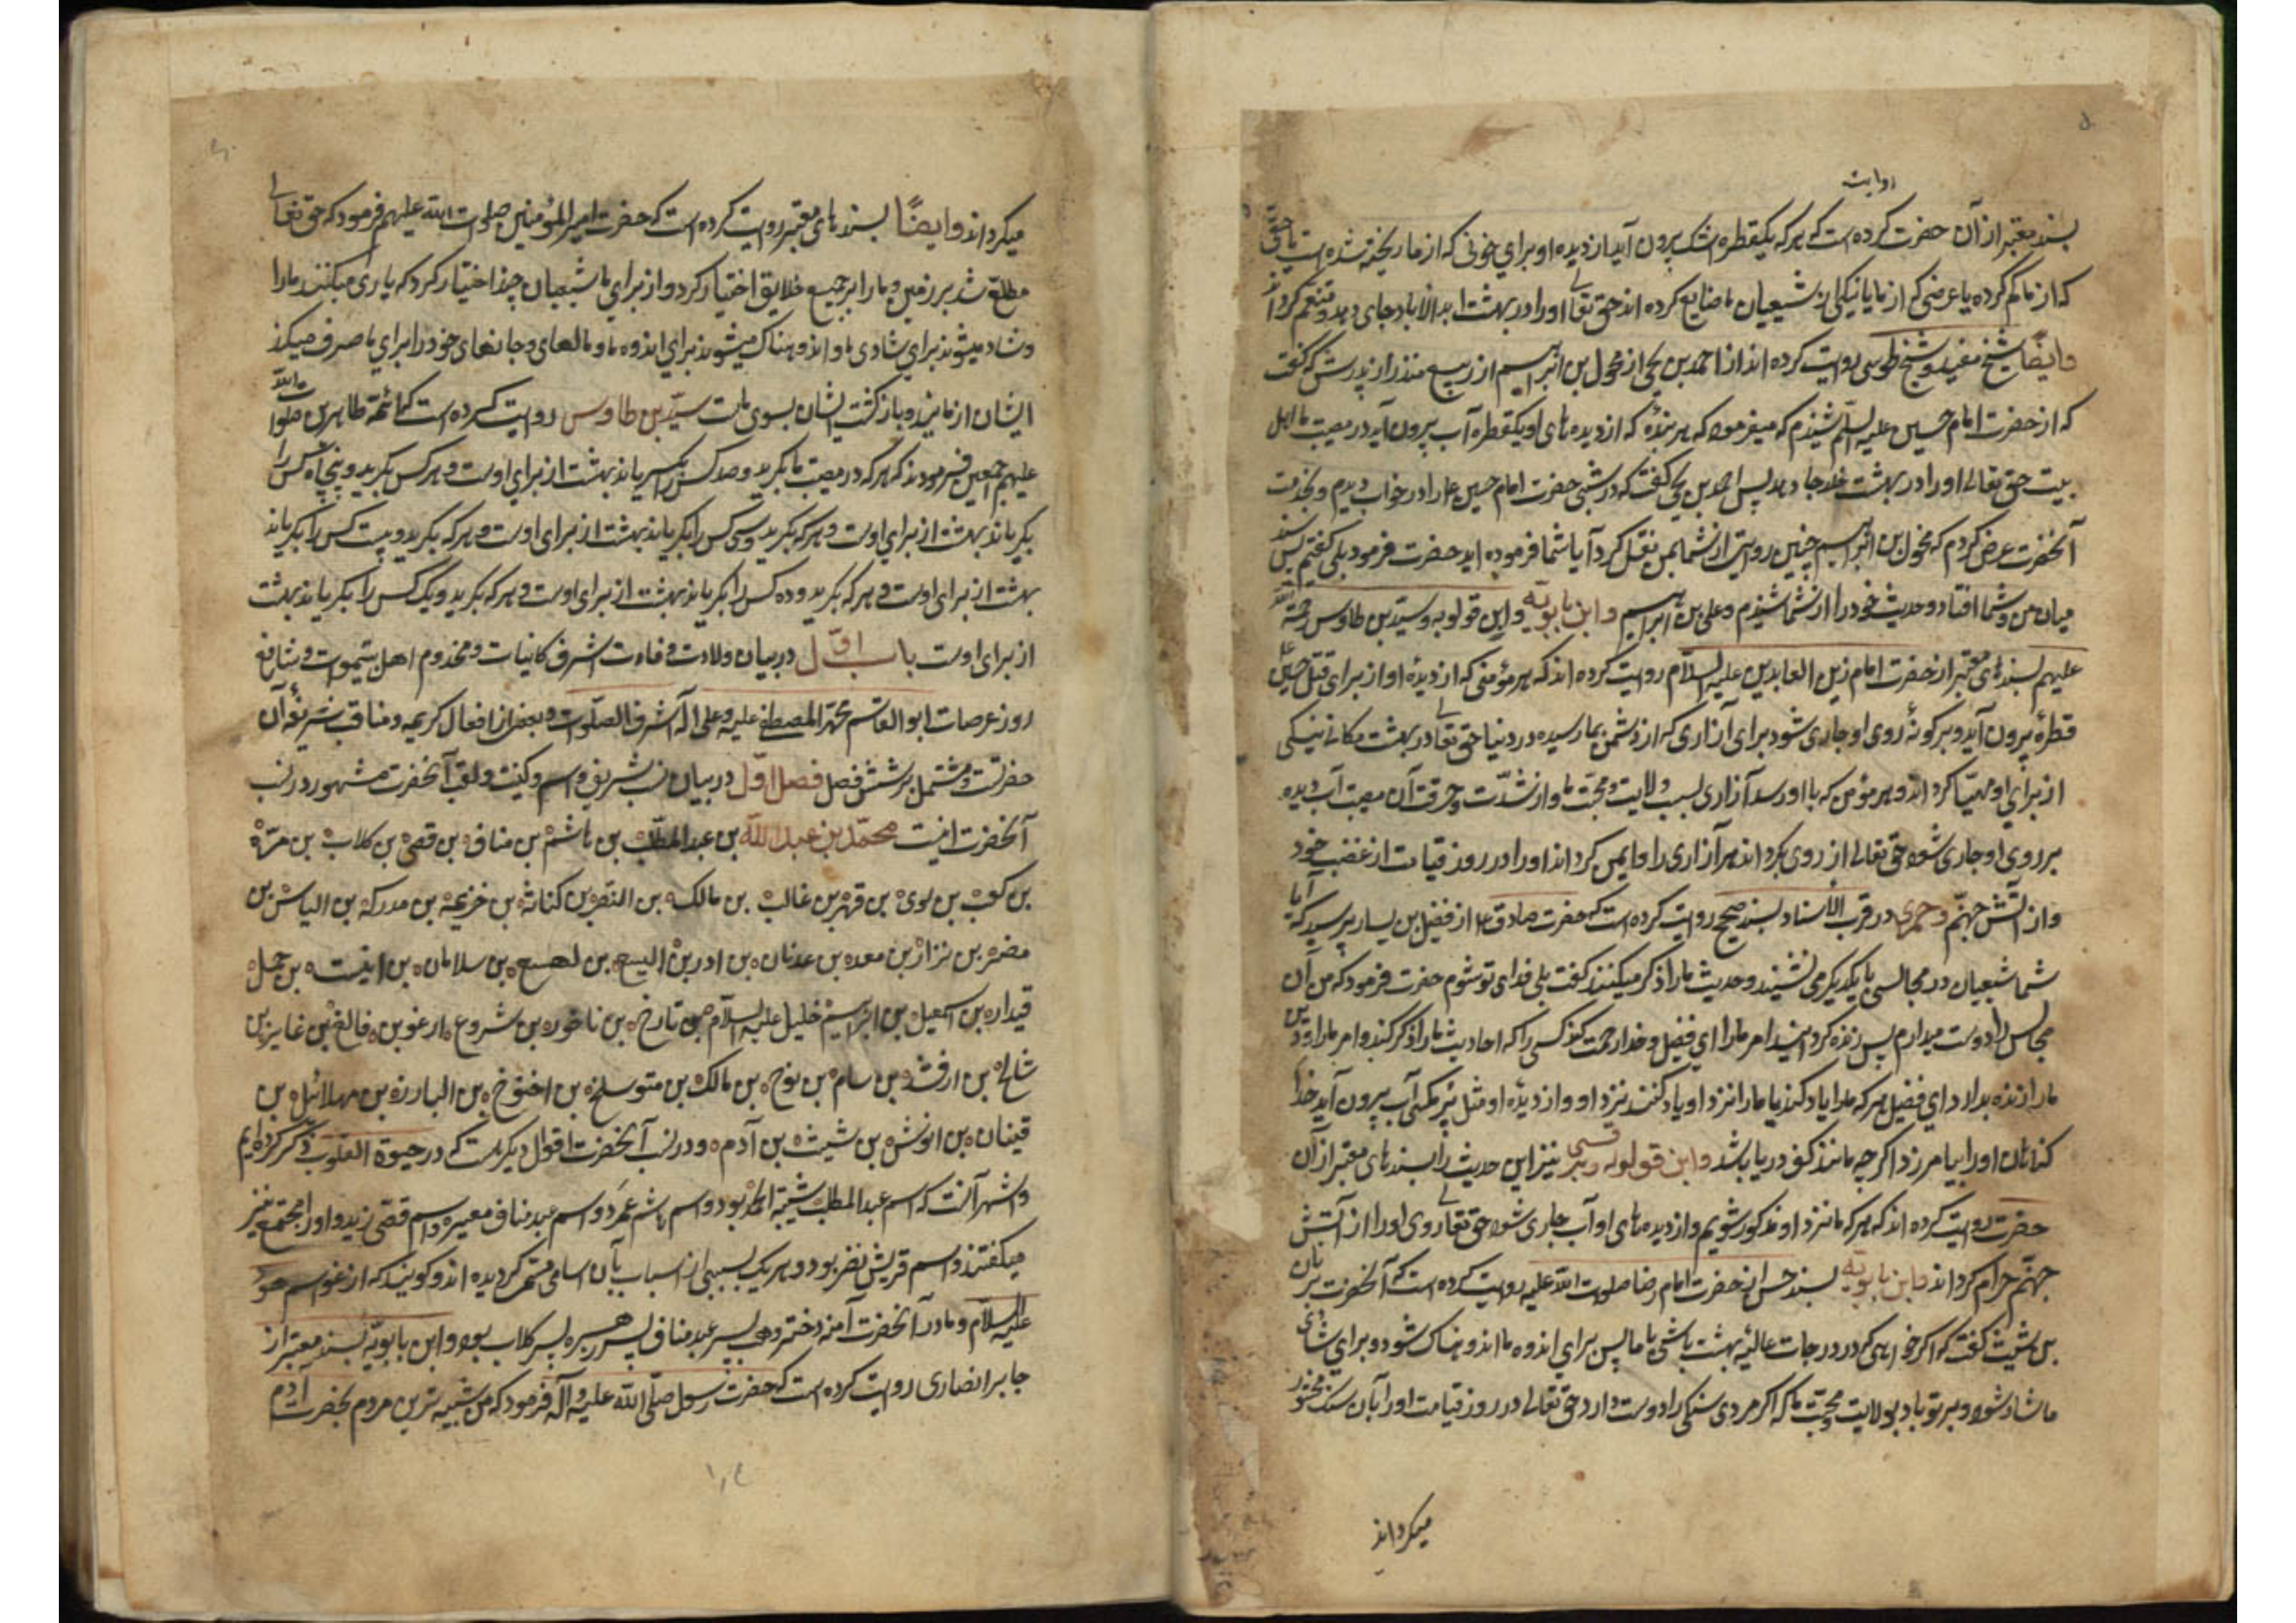 روایت
بسند معتبر از آن حضرت کرده است که هر که یکقطره اشک بیرون آید از دیده او برای خونی که از ما ریخته شده است یا حقی
که از ما کم کرده یا عرضی که از ما یا نیکی از شیعیان ما ضایع کرده اند حق تعالی او را در بهشت ابد الاباد جای دهد و متنعم گرداند
وایضًا شیخ مفید و شیخ طوسی روایت کرده اند از احمد بن یحیی از مخول بن ابراهیم از ربیع منذر از پدرش که گفت
که از حضرت امام حسین علیه السلم شنیدم که میفرمود که هر بندهٔ که از دیده های او یکقطره آب بیرون آید در مصیبت ما اهل
بیت حق تعالی او را در بهشت خلد جا دهد پس احمد بن یحیی گفت که در شبی حضرت امام حسین ع را در خواب دیدم و بخدمت
آنحضرت عرض کردم که مخول بن ابراهیم چنین روایتی از شما بمن نقل کرد آیا شما فرموده اید حضرت فرمود بلی گفتم پس سند
میان من و شما افتاد و حدیث خود را از شما شنیدم و علی بن ابراهیم و ابن بابویه و ابن قولویه و سید بن طاوس رحمة الله
علیهم بسندهای معتبر از حضرت امام زین العابدین علیه السلام روایت کرده اند که هر مؤمنی که از دیدهٔ او از برای قتل حسین ع
قطرهٔ بیرون آید و بر گونهٔ روی او جاری شود برای آزاری که از دشمن بما رسیده در دنیا حق تعالی در بهشت مکان نیکی
از برای او مهیّا گرداند و هر مؤمن که باو رسد آزاری بسبب ولایت و محبّت ما و از شدّت و حرقت آن مصیبت آب دیده
بر روی او جاری شود حق تعالی از روی بگرداند هر آزاری را و ایمن گرداند او را در روز قیامت از غضب خود
و از آتش جهنّم و حمیری در قرب الأسناد بسند صحیح روایت کرده است که حضرت صادق ع از فضیل بن یسار پرسید که آیا
شما شیعیان در مجالس با یکدیگر می نشینید و حدیث ما را ذکر میکنید گفت بلی فدای تو شوم حضرت فرمود که من آن
مجالس را دوست میدارم پس زنده گردانید امر ما را ای فضیل و خدا رحمت کند کسی را که احادیث ما را ذکر کند و امر ما را و دین
ما را زنده بدارد ای فضیل هر که ما را یاد کند یا ما را نزد او یاد کنند نزد او و از دیدهٔ او مثل پر مگس آب بیرون آید خدا
گناهان او را بیامرزد اگر چه مانند کف دریا باشد و ابن قولویه و برقی نیز این حدیث را بسندهای معتبر از آن
حضرت روایت کرده اند که هر که ما نزد او مذکور شویم و از دیده های او آب جاری شود حق تعالی روی او را از آتش
جهنّم حرام گرداند و ابن بابویه بسند حسن از حضرت امام رضا صلوات الله علیه روایت کرده است که آنحضرت بریان
بن شبیب گفت که اگر خواهی که در درجات عالیهٔ بهشت باشی با ما پس برای اندوه ما اندوهناک شو و برای شادی
ما شاد شو و بر تو باد بولایت و محبّت ما که اگر مردی سنگی را دوست دارد حق تعالی در روز قیامت او را بآن سنگ محشور
میگرداند
میگرداند و ایضًا بسندهای معتبر روایت کرده است که حضرت امیر المؤمنین صلوات الله علیهم فرمود که حق تعالی
مطلع شد بر زمین و ما را بر جمیع خلایق اختیار کرد و از برای ما شیعیان چند اختیار کرد که یاری میکنند ما را
و شاد میشوند برای شادی ما و اندوهناک میشوند برای اندوه ما و مالهای و جانهای خود را برای ما صرف میکنند
ایشان از مایند و بازگشت ایشان بسوی ماست سیّد بن طاوس روایت کرده است که ائمه طاهرین صلوات الله
علیهم اجمعین فرمودند که هر که در مصیبت ما بگرید و صد کس را بگریاند بهشت از برای اوست و هر کس بگرید و پنجاه کس را
بگریاند بهشت از برای اوست و هر که بگرید و سی کس را بگریاند بهشت از برای اوست و هر که بگرید و بیست کس را بگریاند
بهشت از برای اوست و هر که بگرید و ده کس را بگریاند بهشت از برای اوست و هر که بگرید و یک کس را بگریاند بهشت
از برای اوست باب اوّل در بیان ولادت و وفات اشرف کاینات و مخدوم اهل سموات و شافع
روز عرصات ابو القاسم محمّد المصطفی علیه و علی آله اشرف الصلوات و بعض از افعال کریمه و مناقب شریفهٔ آن
حضرتست و مشتمل بر شش فصل فصل اوّل در بیان نسب شریف و اسم و کنیت و لقب آنحضرت مشهور در نسب
آنحضرت اینست محمّد بن عبد اللّه بن عبد المطّلب بن هاشم بن مناف بن قصی بن کلاب بن مرّة
بن کعب بن لوی بن فهر بن غالب بن مالک بن النضر بن کنانه بن خزیمه بن مدرکه بن الیاس بن
مضر بن نزار بن معد بن عدنان بن ادر بن الیسع بن لهسع بن سلامان بن اینت بن حمل
قیدار بن اسمعیل بن ابراهیم خلیل علیه السلام بن تارخ بن ناخور بن شروع ارغو بن فالغ بن غابر بن
شالح بن ارفشد بن سام بن نوح بن مالک بن متوسلخ بن اخنوخ بن البارز بن مهلائیل بن
قینان بن انوش بن شیث بن آدم و در نسب آنحضرت اقوال دیگر هست که در حیوة القلوب ذکر کرده ایم
و اشهر آنست که اسم عبد المطلب شیبة الحمد بود و اسم هاشم عمرو و اسم عبد مناف مغیره و اسم قصّی زید و او را مجتمع نیز
میگفتند و اسم قریش نضر بود و هر یک بسببی از اسباب بآن اسامی مشتهر گردیده اند و گویند که ارغو اسم هود
علیه السلام و مادر آنحضرت آمنه دختر وهب پسر عبد مناف پسر زهره پسر کلاب بود و ابن بابویّه بسند معتبر از
جابر انصاری روایت کرده است که حضرت رسول صلّی اللّه علیه و آله فرمود که من شبیه ترین مردم بحضرت آدم